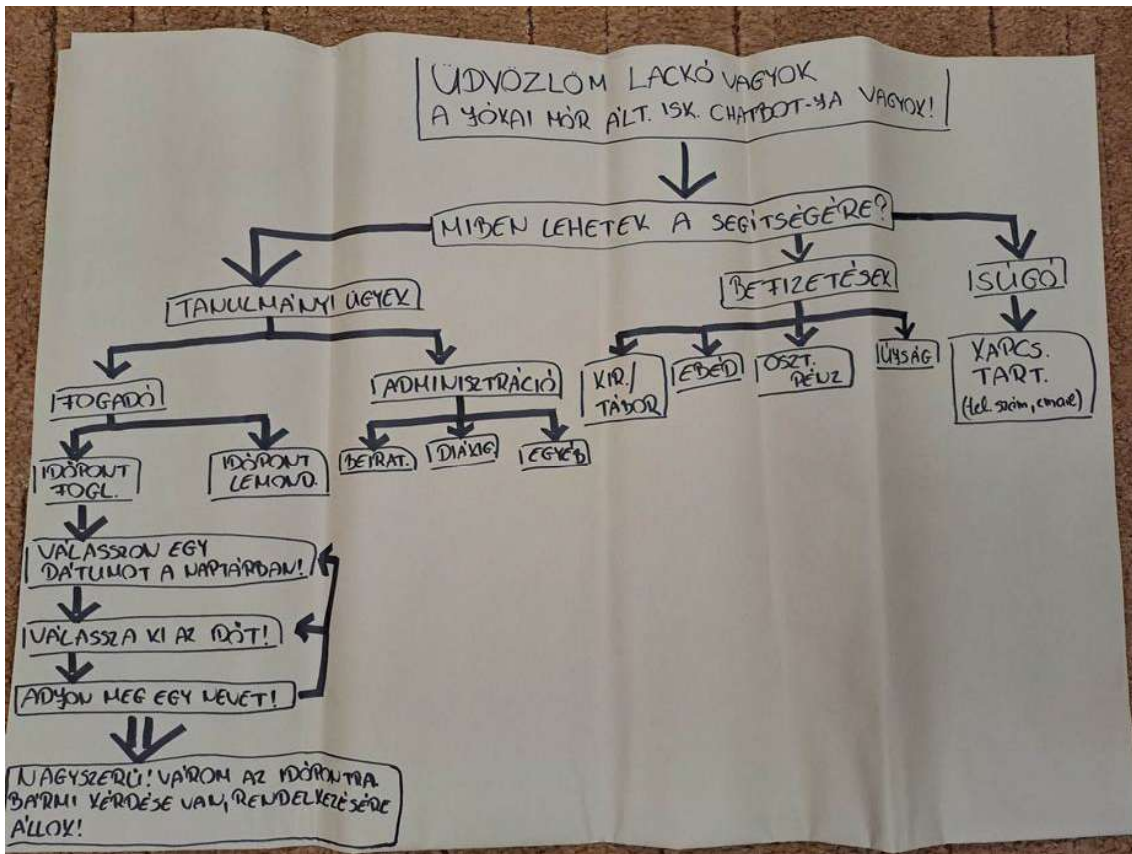 ÜDVÖZLÖM LACKÓ VAGYOK
A JÓKAI MÓR ÁLT. ISK. CHATBOT-JA VAGYOK!
MIBEN LEHETEK A SEGÍTSÉGÉRE?
TANULMÁNYI ÜGYEK
BEFIZETÉSEK
SÚGÓ
FOGADÓ
ADMINISZTRÁCIÓ
KIR./
TÁBOR
EBÉD
OSZT.
PÉNZ
ÚJSÁG
KAPCS.
TART.
(tel. szám, email)
IDŐPONT
FOGL.
IDŐPONT
LEMOND.
BEIRAT.
DIÁKIG
EGYÉB
VÁLASSZON EGY
DÁTUMOT A NAPTÁRBAN!
VÁLASSZA KI AZ IDŐT!
ADJON MEG EGY NEVET!
NAGYSZERŰ! VÁROM AZ IDŐPONTRA.
BÁRMI KÉRDÉSE VAN, RENDELKEZÉSÉRE
ÁLLOK!